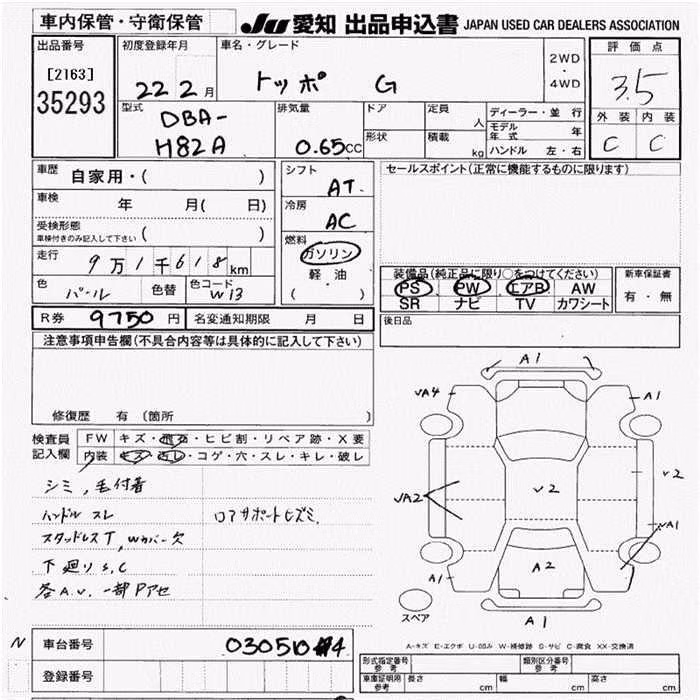 車内保管・守衛保管
JU 愛知 出品申込書 JAPAN USED CAR DEALERS ASSOCIATION
出品番号
[2163]
35293
初度登録年月
22 2月
車名・グレード
トッポ G
2WD
・
4WD
評価点
3.5
外装 内装
C C
型式
DBA-
H82A
排気量
0.65cc
ドア
形状
定員
人
積載
kg
ディーラー・並 行
モデル
年 式 年
ハンドル 左・右
車歴
自家用・( )
車検
年 月( 日)
受検形態
車検付きのみ記入して下さい ( )
走行
9万1千618km
色
パール
色替
色コード
W13
シフト
AT
冷房
AC
燃料
ガソリン
軽 油
( )
セールスポイント(正常に機能するものに限ります)
装備品(純正品に限り○をつけてください)
PS PW エアB AW
SR ナビ TV カワシート
新車保証書
有・無
R券 9750円
名変通知期限 月 日
後日品
注意事項申告欄(不具合内容等は具体的に記入して下さい)
修復歴 有 〔箇所 〕
検査員
記入欄
FW キズ・飛石・ヒビ割・リペア跡・X要
内装 キズ・汚レ・コゲ・穴・スレ・キレ・破レ
シミ,毛付着
ハンドルスレ
ロアサポートヒズミ
スタッドレスT,Wカバー欠
下廻りS,C
各A.U.一部Pアセ
A1
UA4
A1
UA2
V2
V2
UA1
A2
A1
A1
スペア
A-キズ E-エクボ U-凹み W-補修跡 S-サビ C-腐食 XX-交換済
N
車台番号
0305104
登録番号
形式指定番号
参考
類別区分番号
参考
車庫証明用
参考
長さ cm 幅 cm 高さ cm